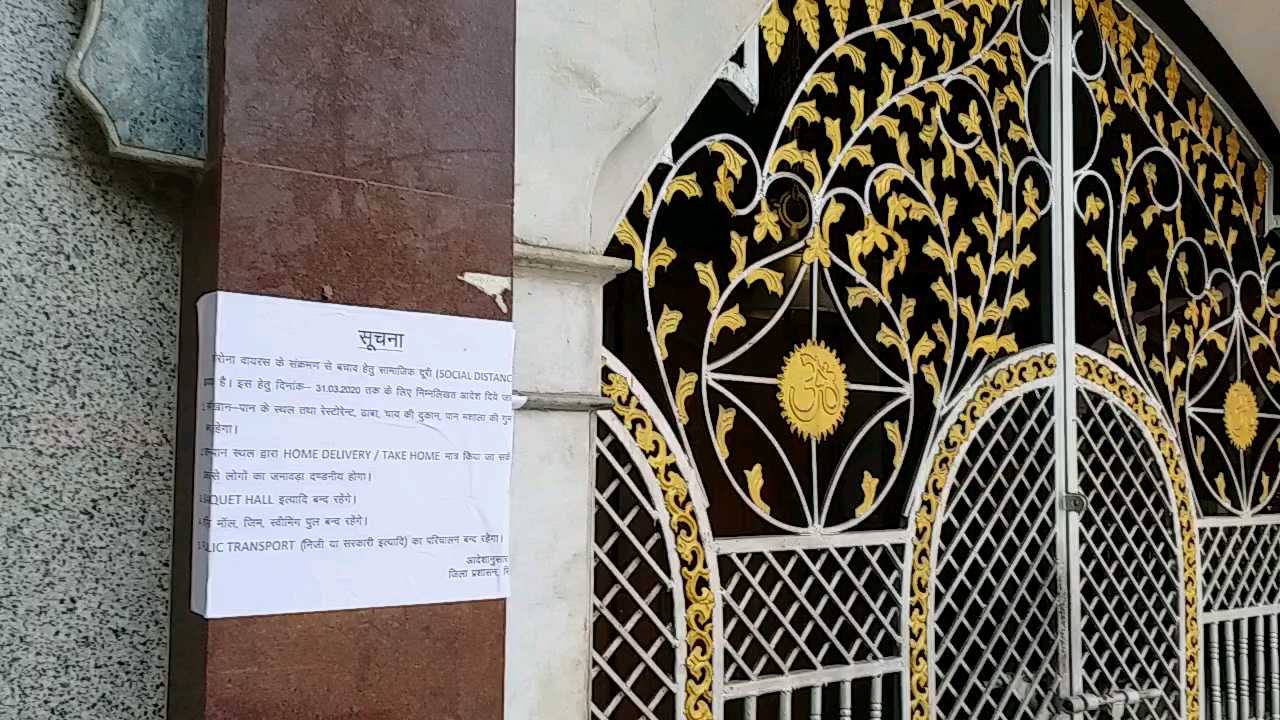 सूचना
वायरस के संक्रमण से बचाव हेतु सामाजिक दूरी (SOCIAL DISTANC
है। इस हेतु दिनांक– 31.03.2020 तक के लिए निम्नलिखित आदेश दिये
खान–पान के स्थल तथा रेस्टोरेन्ट, ढाबा, चाय की दुकान, पान मशाला की
रहेगा।
स्थल द्वारा HOME DELIVERY / TAKE HOME मात्र किया जा
लोगों का जमावड़ा दण्डनीय होगा।
QUET HALL इत्यादि बन्द रहेंगे।
मॉल, जिम, स्वीमिंग पुल बन्द रहेंगे।
LIC TRANSPORT (निजी या सरकारी इत्यादि) का परिचालन बन्द रहेगा।
आदेशानुसार
जिला प्रशासन,
ॐ